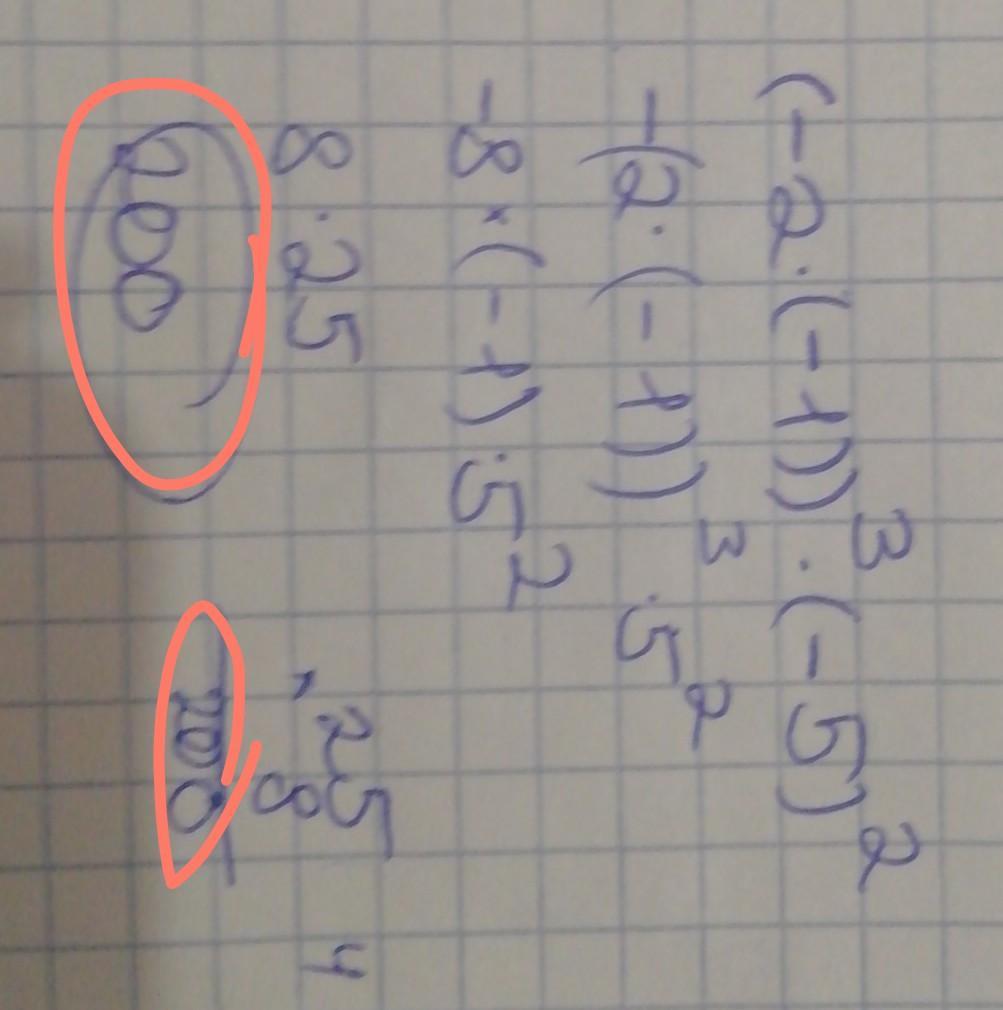 (-2·(-1))³·(-5)²
-(2·(-1))³·5²
-8×(-1)·5²
8·25
200
×25
8
200
4